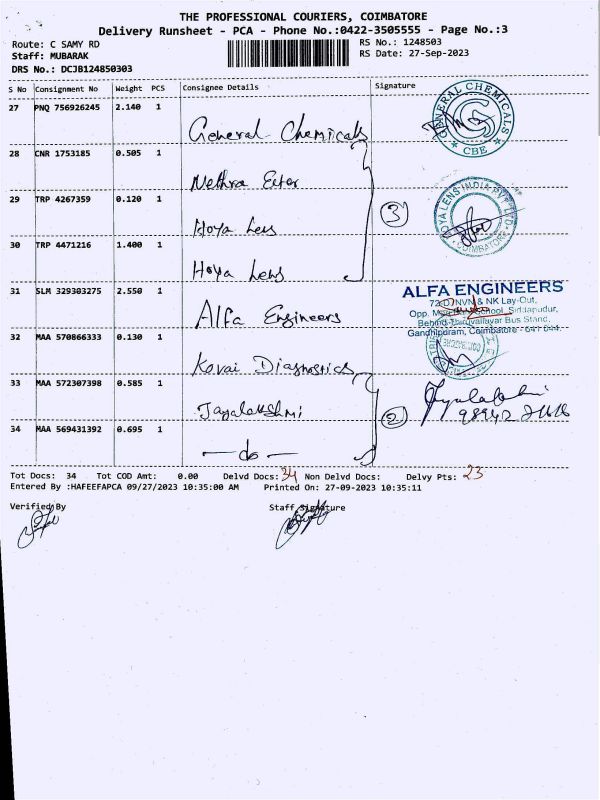 THE PROFESSIONAL COURIERS, COIMBATORE
Delivery Runsheet - PCA - Phone No.:0422-3505555 - Page No.:3
Route: C SAMY RD RS No.: 1248503
Staff: MUBARAK RS Date: 27-Sep-2023
DRS No.: DCJB124850303
S No Consignment No Weight PCS Consignee Details Signature
27 PNQ 756926245 2.140 1 General Chemicals
GENERAL CHEMICALS
CBE
28 CNR 1753185 0.505 1 Nethra
29 TRP 4267359 0.120 1 Hoya Lens
3
HOYA LENS INDIA PVT LTD
COIMBATORE
30 TRP 4471216 1.400 1 Hoya Lens
31 SLM 329303275 2.550 1 Alfa Engineers
ALFA ENGINEERS
NVN & NK Lay-Out,
Opp. School, Siddapudur,
Behind Thiruvalluvar Bus Stand,
Gandhipuram, Coimbatore - 641 044.
32 MAA 570866333 0.130 1 Kovai Diagnostics
33 MAA 572307398 0.585 1 Jayalakshmi
2
34 MAA 569431392 0.695 1 — do —
Tot Docs: 34 Tot COD Amt: 0.00 Delvd Docs: 34 Non Delvd Docs: Delvy Pts: 23
Entered By :HAFEEFAPCA 09/27/2023 10:35:00 AM Printed On: 27-09-2023 10:35:11
Verified By Staff Signature